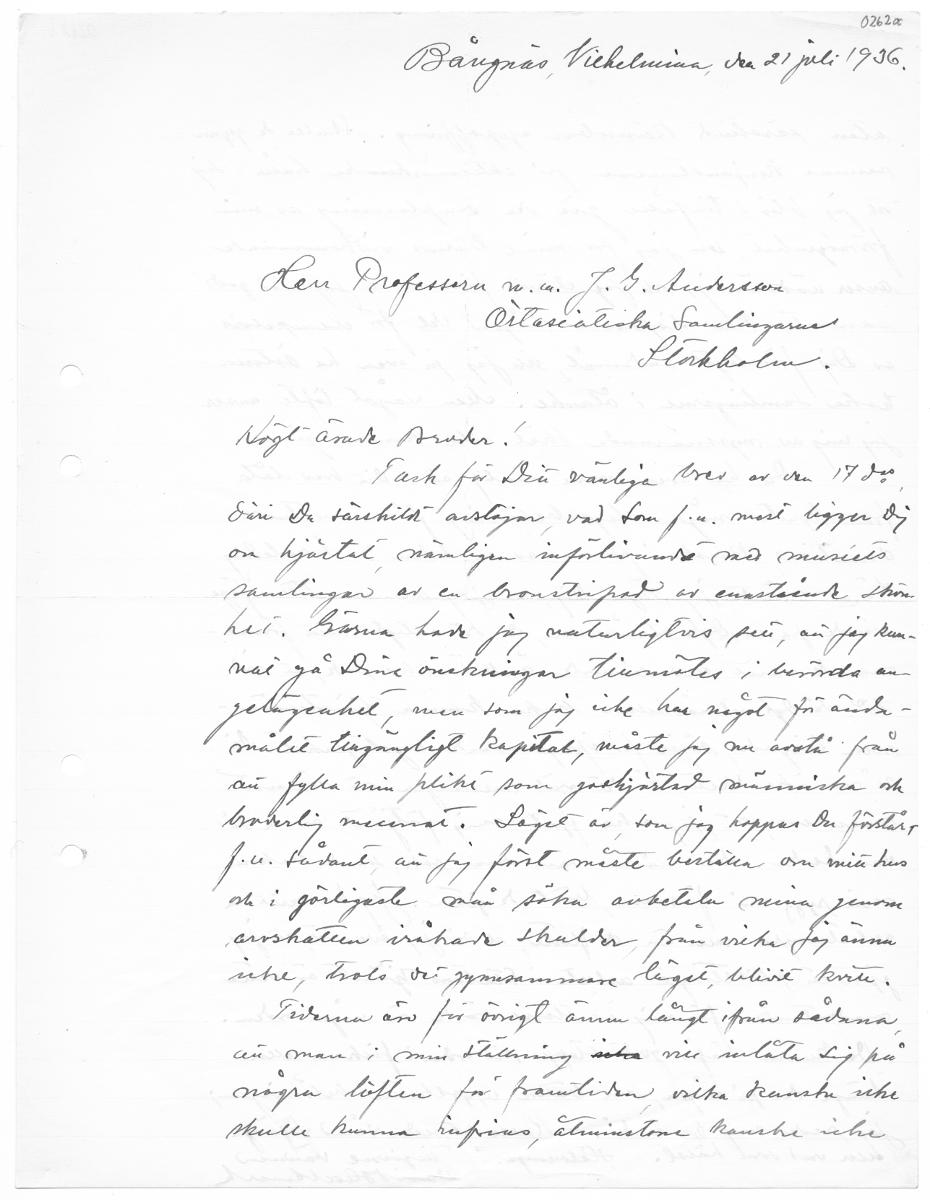 0262a
Bångnäs, Vilhelmina, den 21 juli 1936.
Herr Professorn m.m. J. G. Andersson
Östasiatiska Samlingarna
Stockholm.
Högt ärade Broder!
Tack för Ditt vänliga brev av den 17 ds,
däri Du särskilt avslöjar, vad som f.n. mest ligger Dig
om hjärtat, nämligen införlivandet med museets
samlingar av en bronstripod av enastående skön-
het. Gärna hade jag naturligtvis sett, att jag kun-
nat gå Dina önskningar tillmötes i berörda an-
gelägenhet, men som jag icke har något för ända-
målet tillgängligt kapital, måste jag nu avstå från
att fylla min plikt som godhjärtad människa och
broderlig mecenat. Läget är, som jag hoppas Du förstår,
f.n. sådant, att jag först måste beställa om mitt hus
och i görligaste mån söka avbetala mina genom
arvskatten iråkade skulder, från vilka jag ännu
icke, trots det gynnsammare läget, blivit kvitt.
Tiderna äro för övrigt ännu långt ifrån sådana,
att man i min ställning icke vill inlåta sig på
några löften för framtiden, vilka kanske icke
skulle kunna infrias, åtminstone kanske icke